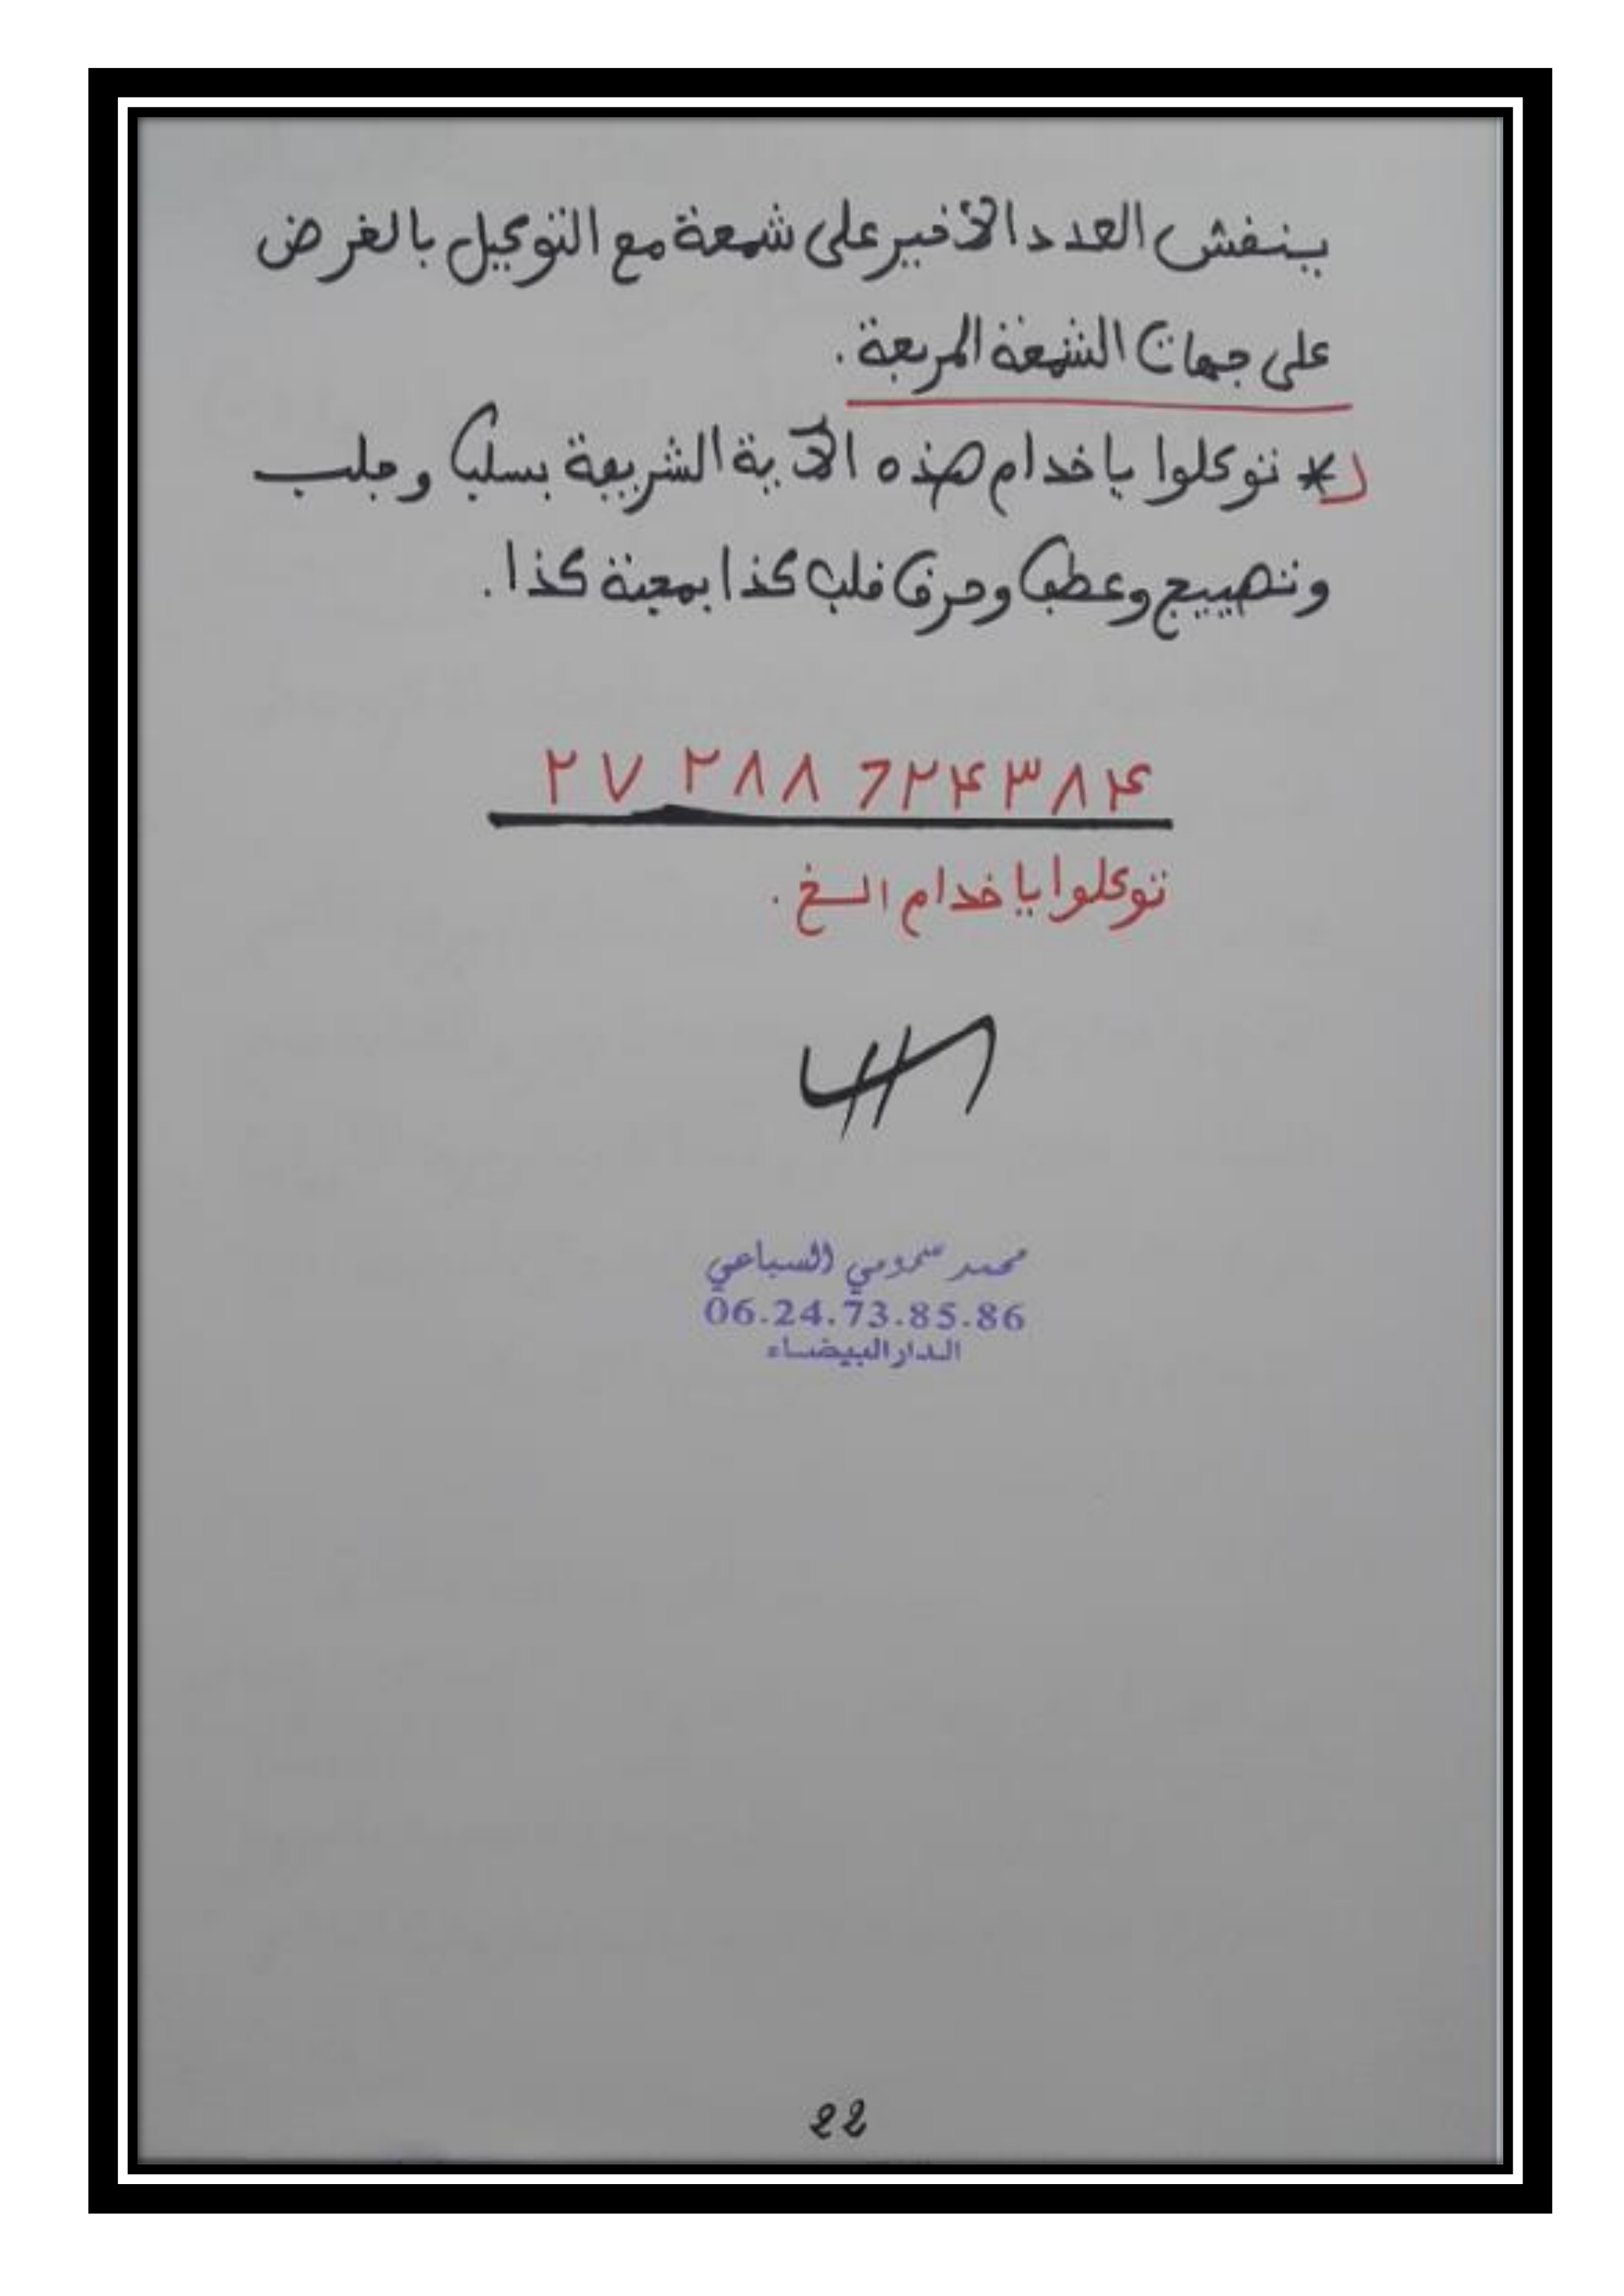 ينقش العدد الأخير على شمعة مع التوكيل بالغرض
على جهات الشمعة المربعة.
* توكلوا يا خدام هذه الآية الشريفة بسلب وجلب
وتهييج وعطف وحرق قلب كذا بمحبة كذا.
٢٧ ٢٨٨ 7٢۴٣٨۴
توكلوا يا خدام الخ.
محمد سمومي السباعي
06.24.73.85.86
الدار البيضاء
22